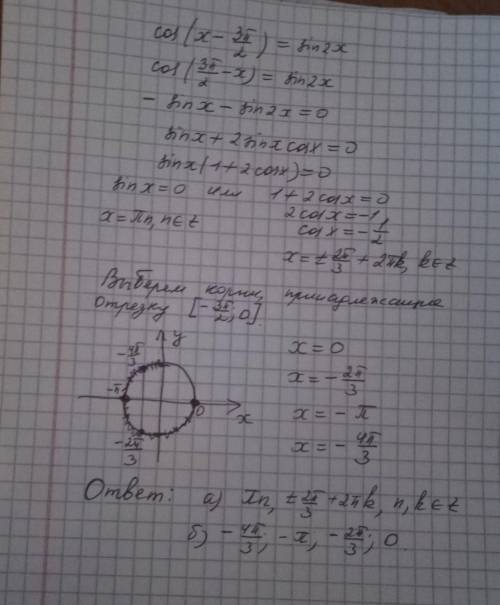 cos(x - 3π/2) = sin2x
cos(3π/2 - x) = sin2x
- sinx - sin2x = 0
sinx + 2sinx cosx = 0
sinx(1 + 2cosx) = 0
sinx = 0 или 1 + 2cosx = 0
2cosx = -1,
x = πn, n∈Z cosx = -1/2
x = ± 2π/3 + 2πk, k∈Z
Выберем корни, принадлежащие
отрезку [-3π/2; 0].
y
-4π/3
x = 0
x = -2π/3
-π
0
x
x = -π
-2π/3
x = -4π/3
Ответ: а) πn, ± 2π/3 + 2πk, n, k∈Z
б) -4π/3; -π, -2π/3; 0.